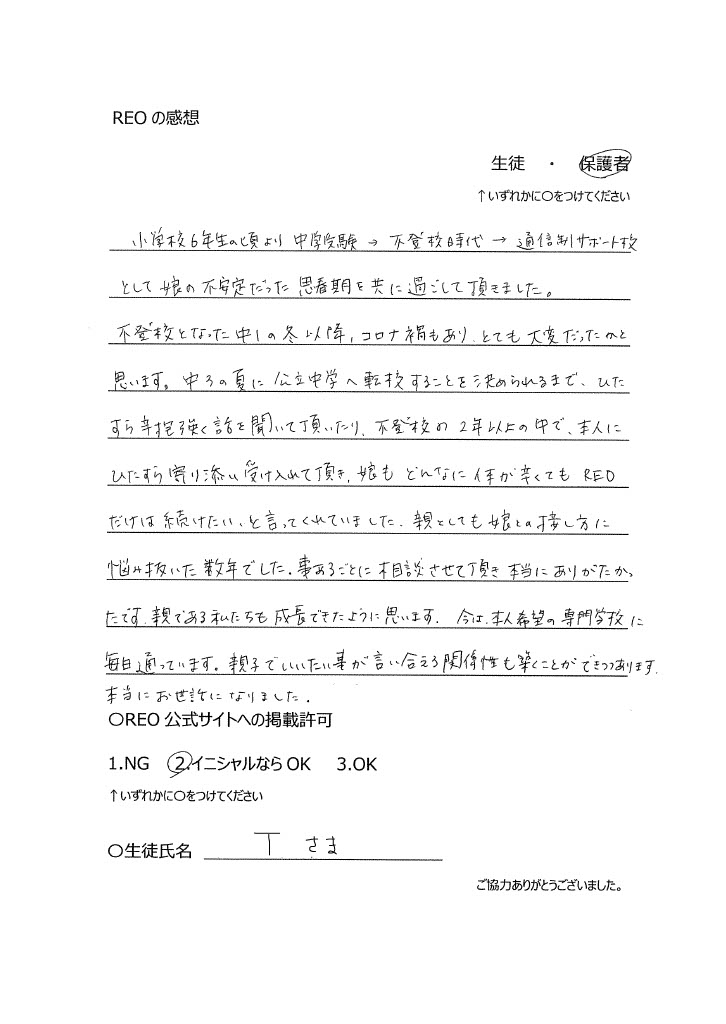 REOの感想
生徒 ・ 保護者
↑いずれかに〇をつけてください
小学校6年生の頃より 中学受験 → 不登校時代 → 通信制サポート校
として娘の不安定だった思春期を共に過ごして頂きました。
不登校となった中1の冬以降、コロナ禍もあり、とても大変だったかと
思います。中3の夏に公立中学へ転校することを決められるまで、ひた
すら辛抱強く話を聞いて頂いたり、不登校の2年以上の中で、本人に
ひたすら寄り添い受け入れて頂き、娘もどんなに体が辛くてもREO
だけは続けたい、と言ってくれていました。親としても娘との接し方に
悩み抜いた数年でした。事あるごとに相談させて頂き本当にありがたかっ
たです。親である私たちも成長できたように思います。今は、本人希望の専門学校に
毎日通っています。親子でいいたい事が言い合える関係性も築くことができつつあります。
本当にお世話になりました。
〇REO公式サイトへの掲載許可
1.NG 2.イニシャルならOK 3.OK
↑いずれかに〇をつけてください
〇生徒氏名 T さま
ご協力ありがとうございました。